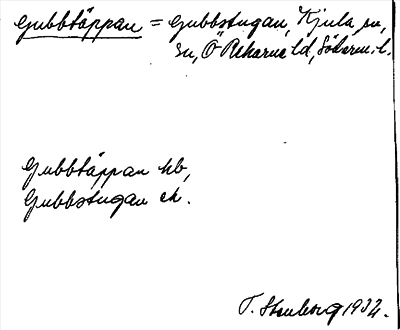 Gubbtäppan = Gubbstugan, Kjula sn,
sn, Ö Rekarne hd, Söderm. l.
Gubbtäppan hb,
Gubbstugan ek.
T. Stenberg 1932.